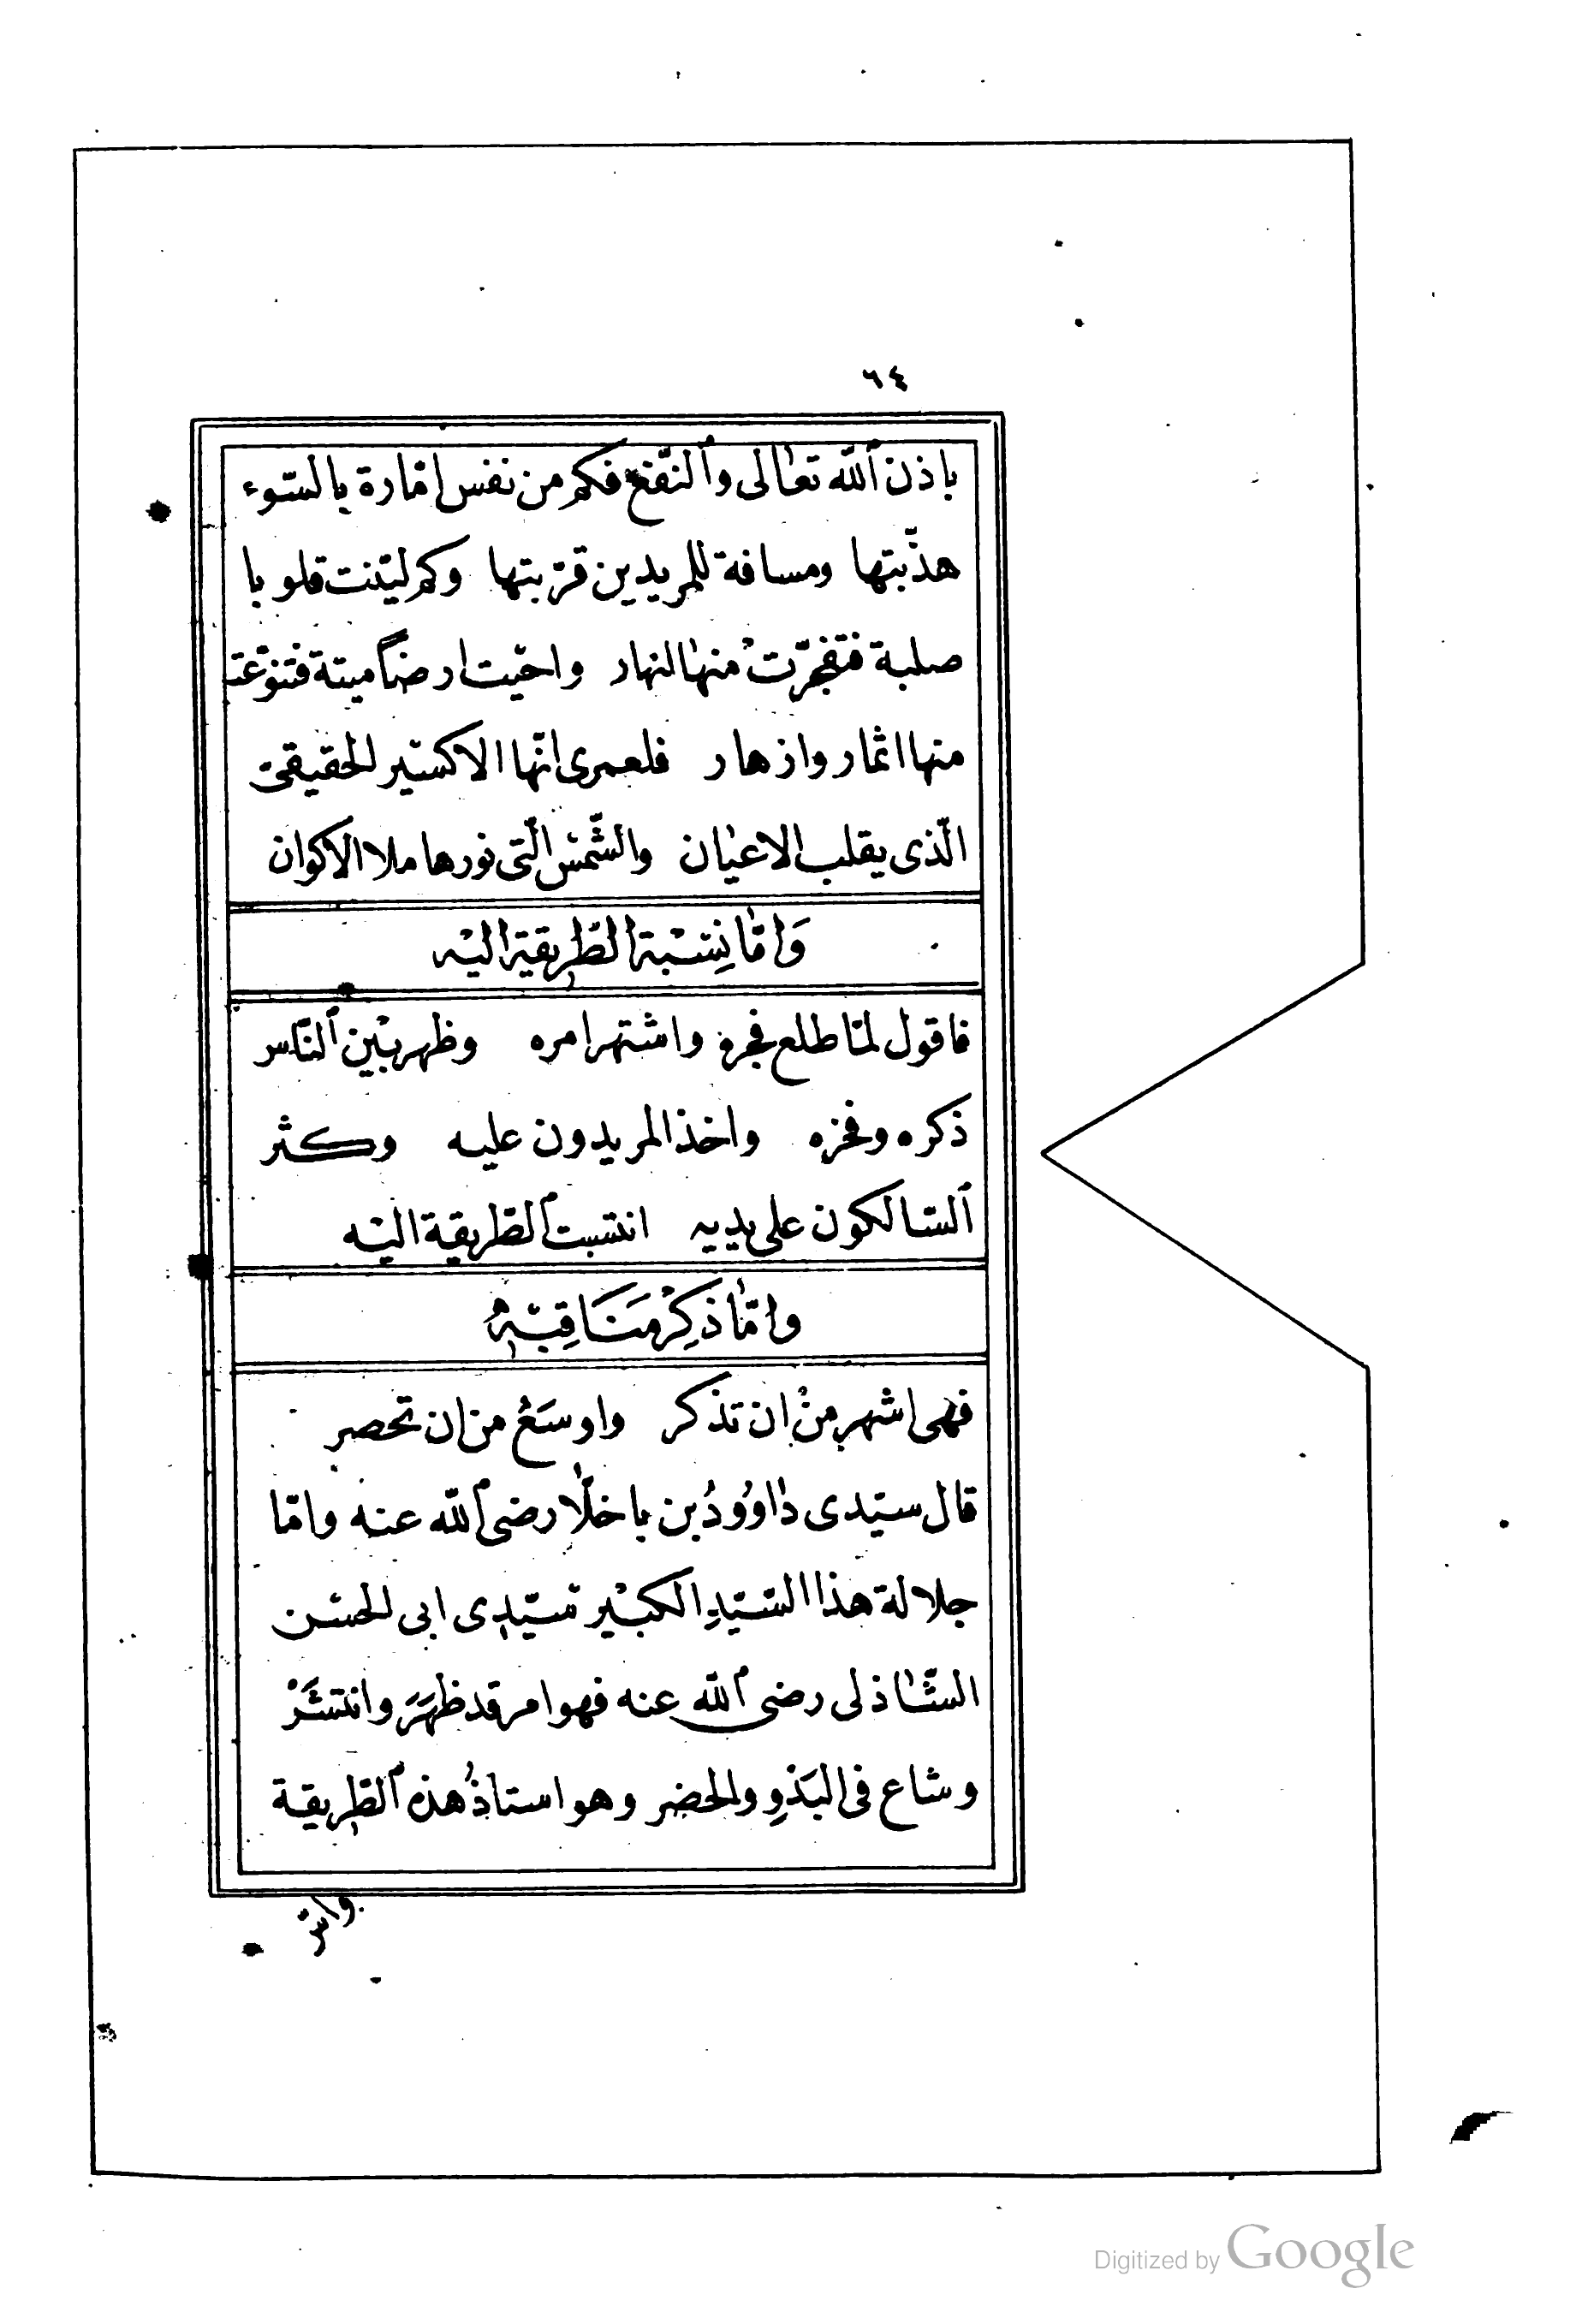 ٦٤
باذن ٱللّٰه تعالى وٱلنّفع فكم من نفس امّارة بالسّوء
هذّبتها ومسافة للمريدين قرّبتها وكم ليّنت قلوبا
صلبة فتفجّرتْ منها النهار واحيّت ارضاً ميتة فتنوّعت
منها اثمار وازهار فلعمرى انّها الاكسير الحقيقىّ
الّذى يقلب الاعيان والشّمس الّتى نورها ملا الاكوان
وَامّا نِسْبة الطّريقة اليْه
فاقول لمّا طلع فجره واشتهر امره وظهر بيْن ٱلنّاس
ذكره وفخره واخذ المريدون عليه وكثر
ٱلسّالكون على يديه انتسبت ٱلطّريقة اليْه
وامّا ذِكْر مَنَاقِبِهِ
فهى اشهر منْ ان تذكر واوسَعْ من ان تحصر
قال سيّدى دٰاوُودُ بن باخلّا رضى ٱللّٰه عنه وامّا
جلالة هذا السّيّدِ الكبيْر سيّدِى ابى الحسن
الشّاذلى رضى ٱللّٰه عنه فهو امر قد ظهَرَ وانتشَرْ
وشاع فى البَدْوِ والحضر وهو استاذُ هذه ٱلطّريقة
Digitized by Google